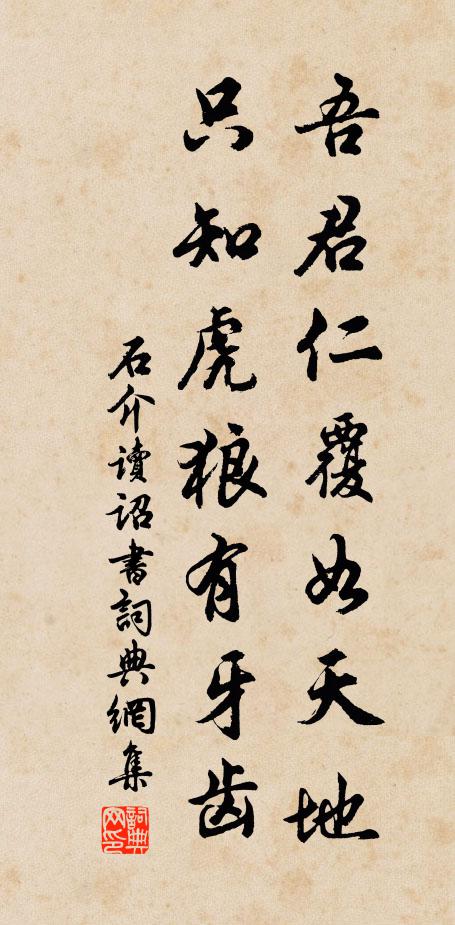 吾君仁覆如天地
只知虎狼有牙齿
石介讀詔書詞典網集
詞典网印